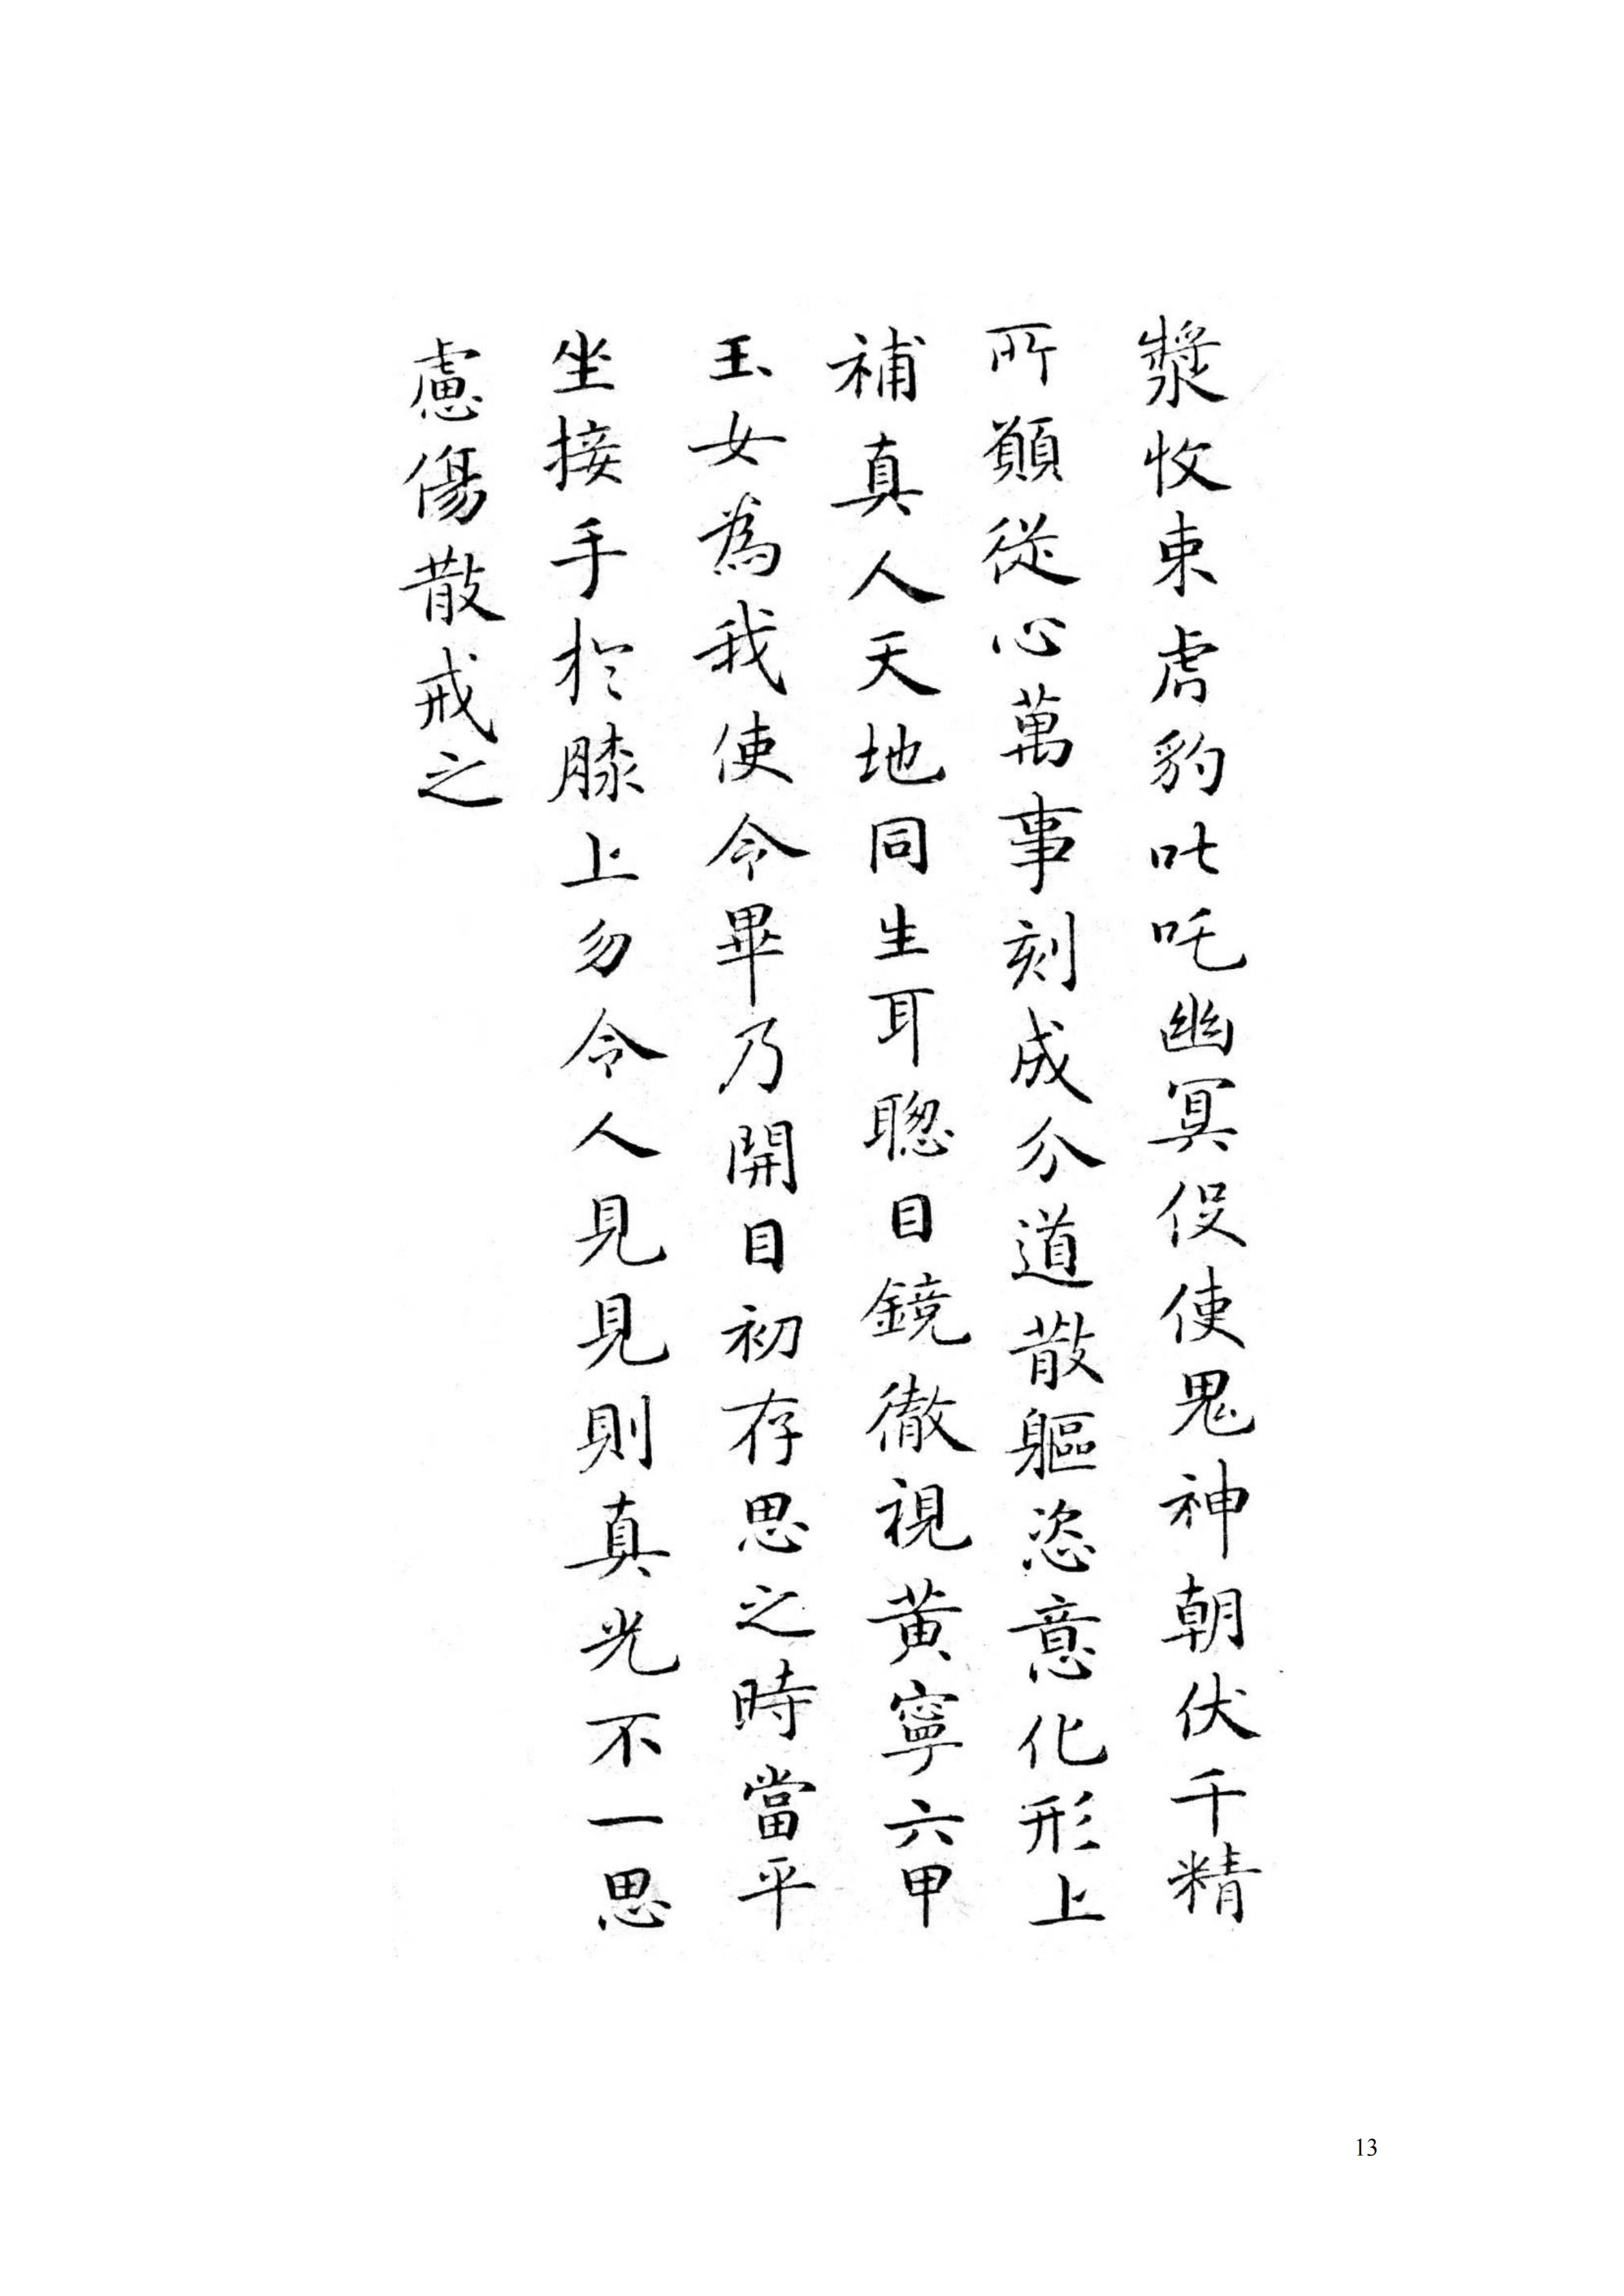 漿收束虎豹叱吒幽冥役使鬼神朝伏千精
所願從心萬事刻成分道散軀恣意化形上
補真人天地同生耳聰目鏡徹視黃寧六甲
玉女為我使令畢乃開目初存思之時當平
坐接手於膝上勿令人見見則真光不一思
慮傷散戒之
13